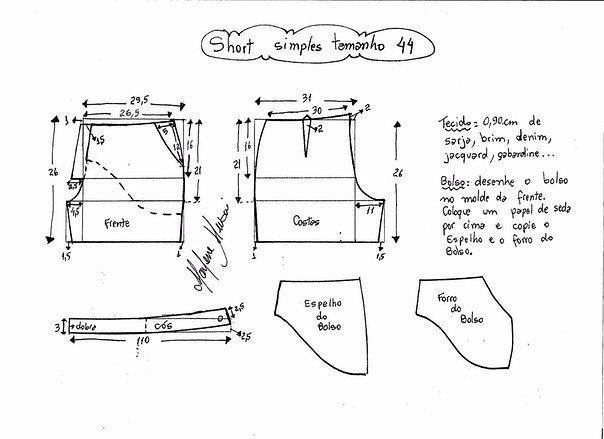 Short simples tamanho 44
29,5
26,5
1
1,5
5
12
16
21
26
3,5
4,5
Frente
1,5
1
31
30
2
2
16
21
26
Costas
11
1
1,5
Tecido: 0,90.cm de
sarja, brim, denim,
jacquard, gabardine...
Bolso: desenhe o bolso
no molde da frente.
Coloque um papel de seda
por cima e copie o
Espelho e o forro do
Bolso.
3
dobra
cós
2,5
2,5
110
Espelho
do
Bolso
Forro
do
Bolso